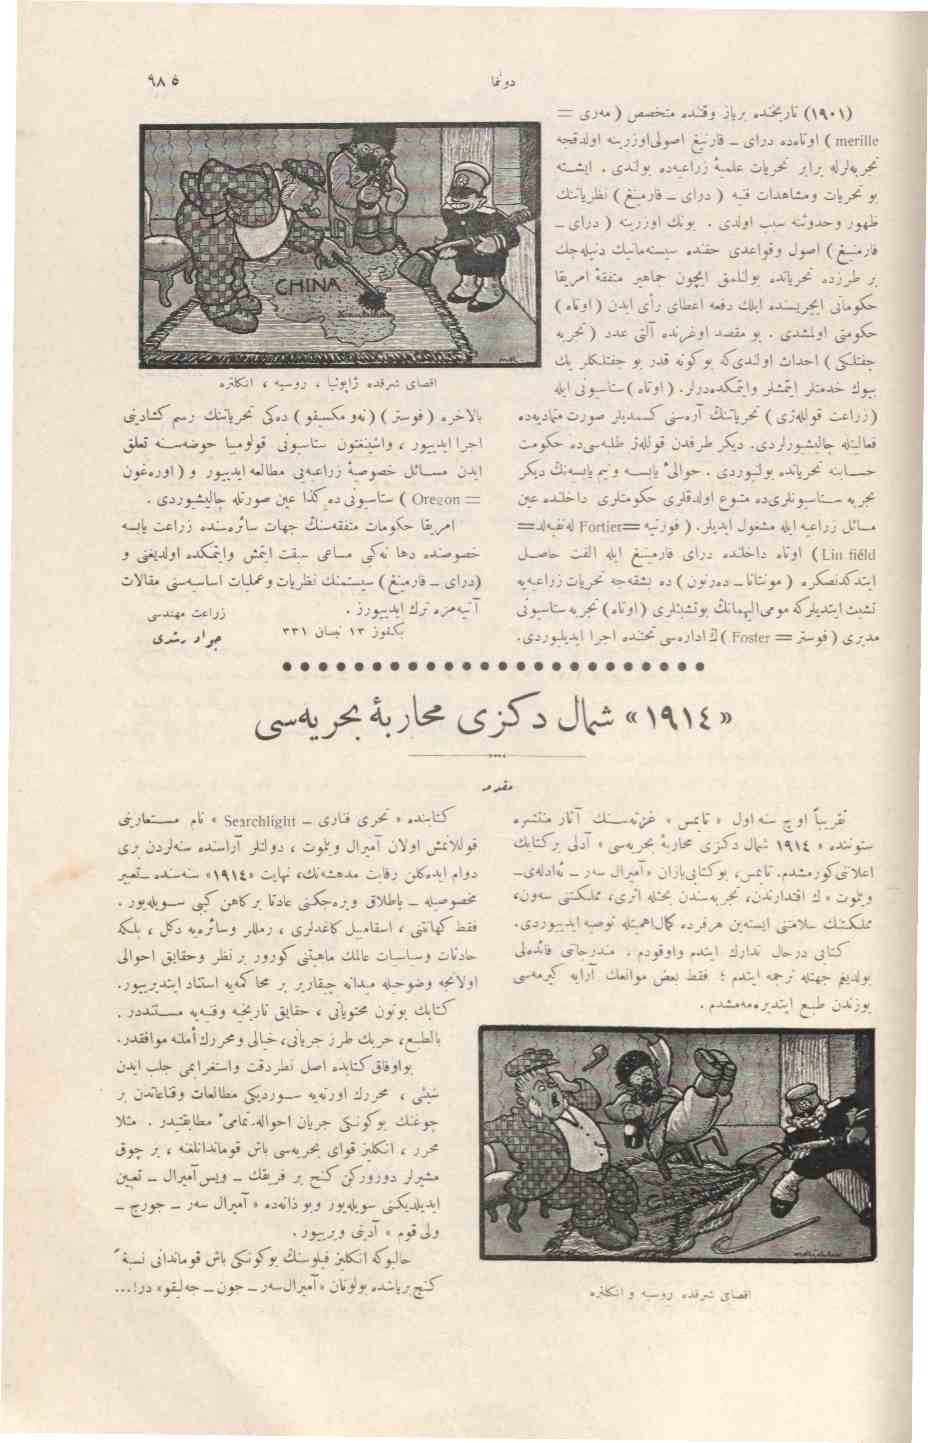 دوننما
٩٨٥
(١٩٠١) تاریخنده بریاز وقتنده متخصص ( مه‌ری =
merille ) اوتاه‌ده درای – فارنیغ اصولی‌اوزرینه اولدقجه
تجربه‌لرله برابر تحریات علمیهٔ زراعیه‌ده بولندی . ایشته
بو تحریات ومشاهدات فنیه ( درای – فارمینغ ) نظریاتنك
ظهور وحدوثنه سبب اولدی . بونك اوزرینه ( درای –
فارمنیغ ) اصول وقواعدی حقنده سیسته‌ماتیك دنیله‌جك
بر طرزده تحریاتده بولنلمق ایچون جماهیر متفقهٔ امریقا
حكوماتی ایچریسنده ایلك دفعه اعطای رأی ایدن ( اوتاه )
حكومتی اولمشدی . بو مقصد اوغرنده آلتی عدد ( تجربه
چفتلكی ) احداث اولندی‌كه بو كونه قدر بو چفتلكلر پك
بیوك خدمتلر ایتمشلر وایتمكده‌درلر. ( اوتاه ) ستاسیونی ایله
( زراعت قوللژی ) تحریاتنك آره‌سی كسمدیلر صورت متمادیه‌ده
فعالیتله چالیشیورلردی. دیكر طرفدن قوللژ طلبه‌سی‌ده حكومت
حسابنه تحریاتده بولنیوردی . حوالئ یابسه ونیم یابسه‌نك دیكر
تجربه ستاسیونلری‌ده متنوع اولدقلری حكومتلری داخلنده عین
مسائل زراعیه ایله مشغول ایدیلر. ( فورتیه =Fortier له‌نفیه‌لد=
Lin fiéld) اوتاه داخلنده درای فارمینغ ایله الفت حاصل
ایتدكدنصكره ( مونتانا – ده‌رتون ) ده بشقه‌جه تحریات زراعیه‌یه
تشبث ایتدیلركه مومی‌الیهمانك بوتشبثلری (اوتاه) تجربه ستاسیونی
مدیری ( فوستر = Foster ) ك اداره‌سی تحتنده اجرا ایدیلیوردی.
CHINA
اقصای شرقده ژاپونیا ، روسیه ، انكلتره
بالاخره ( فوستر ) ( نه‌و مكسیقو ) ده‌كی تحریاتنك رسم كشادینی
اجرا ایدییور ، واشینغتون ستاسیونی قولومبیا حوضه‌سنه تعلق
ایدن مسائل خصوصیهٔ زراعیه‌یی مطالعه ایدییور و ( اوره‌غون
= Oregon ) ستاسیونی ده كذا عین صورتله چالیشیوردی .
امریقا حكومات متفقه‌سنك جهات سائره‌سنده زراعت یابسه
خصوصنده دها نه‌كی مساعی سبقت ایتمش وایتمكده اولدیغنی و
(درای – فارمنیغ) سیستمنك نظریات وعملیات اساسیه‌سنی مقالات
آتیه‌مزه ترك ایدییورز .
بكقوز ١٣ نیسان ٣٣١
زراعت مهندسی
جواد رشدی
«١٩١٤» شمال دكزی محاربهٔ بحریه‌سی
مقدمه
تقریباً اوچ سنه اول « تایمس » غزته‌سنك آثار منتشره
ستوننده « ١٩١٤ شمال دكزی محاربهٔ بحریه‌سی » آدلی بر كتابك
اعلاننی‌كورمشدم. تایمس، بو كتابی‌یازان «آمیرال سه‌ر –
ویلموت » ك اقتدارندن، تجربه‌سندن بحثله اثری، مملكتنی سه‌ون،
مملكتنك سلامتنی ایسته‌ین هرفرده كمال‌اهمیتله توصیه ایدییوردی.
كتابی درحال تدارك ایتدم واوقودم . مندرجاتی فائده‌لی
بولدیغم جهتله ترجمه ایتدم ؛ فقط بعض موانعك آرایه كیرمه‌سی
یوزندن طبع ایتدیره‌مه‌مشدم .
اقصای شرقده روسیه و انكلتره
كتابنده « تحری فناری – Searchlight » نام مستعارینی
قوللانمش اولان آمیرال ویلموت ، دولتلر آراسنده سنه‌لردن بری
دوام ایده‌كلن رقابت مدهشه‌نك، نهایت «١٩١٤» سنه‌سنده –تعبیر
مخصوصیله – پاطلاق ویره‌جكنی عادتا بر كاهن كبی سویله‌یور .
فقط كهانتنی ، اسقامبیل كاغدلری ، رمللر وسائره‌یه دكل ، بلكه
حادثات وسیاسیات عالمك ماهیتنی كورور بر نظر وحقایق احوالی
اولانجه وضوحیله میدانه چیقاریر بر محاكمه‌یه استناد ایتدیرییور.
كتابك بوتون محتویاتی ، حقایق تاریخیه وفنیه‌یه مستنددر .
بالطبع، حربك طرز جریانی، خیالی ومحررك أملنه موافقدر.
بواوفاق كتابده اصل نظردقت واستغرابمی جلب ایدن
شیئی ، محررك اورته‌یه سوردیكی مطالعات وقناعاتدن بر
چوغنك بو كونكی جریان احواله‌تمامیً مطابقتیدر . مثلا
محرر ، انكلیز قوای بحریه‌سی باش قوماندانلغنه ، بر چوق
مشیرلر دورور‌كن كنج بر فریقك – ویس آمیرال – تعیین
ایدیلدیكنی سویله‌یور وبو ذاته‌ده « آمیرال سه‌ر – جورج –
ولی قوم » آدینی ویرییور .
حالبوكه انكلیز فیلوسنك بو كونكی باش قوماندانی نسبةً
كنج بریاشده بولونان «آمیرال‌سه‌ر – جون – جه‌لیقو» در!...